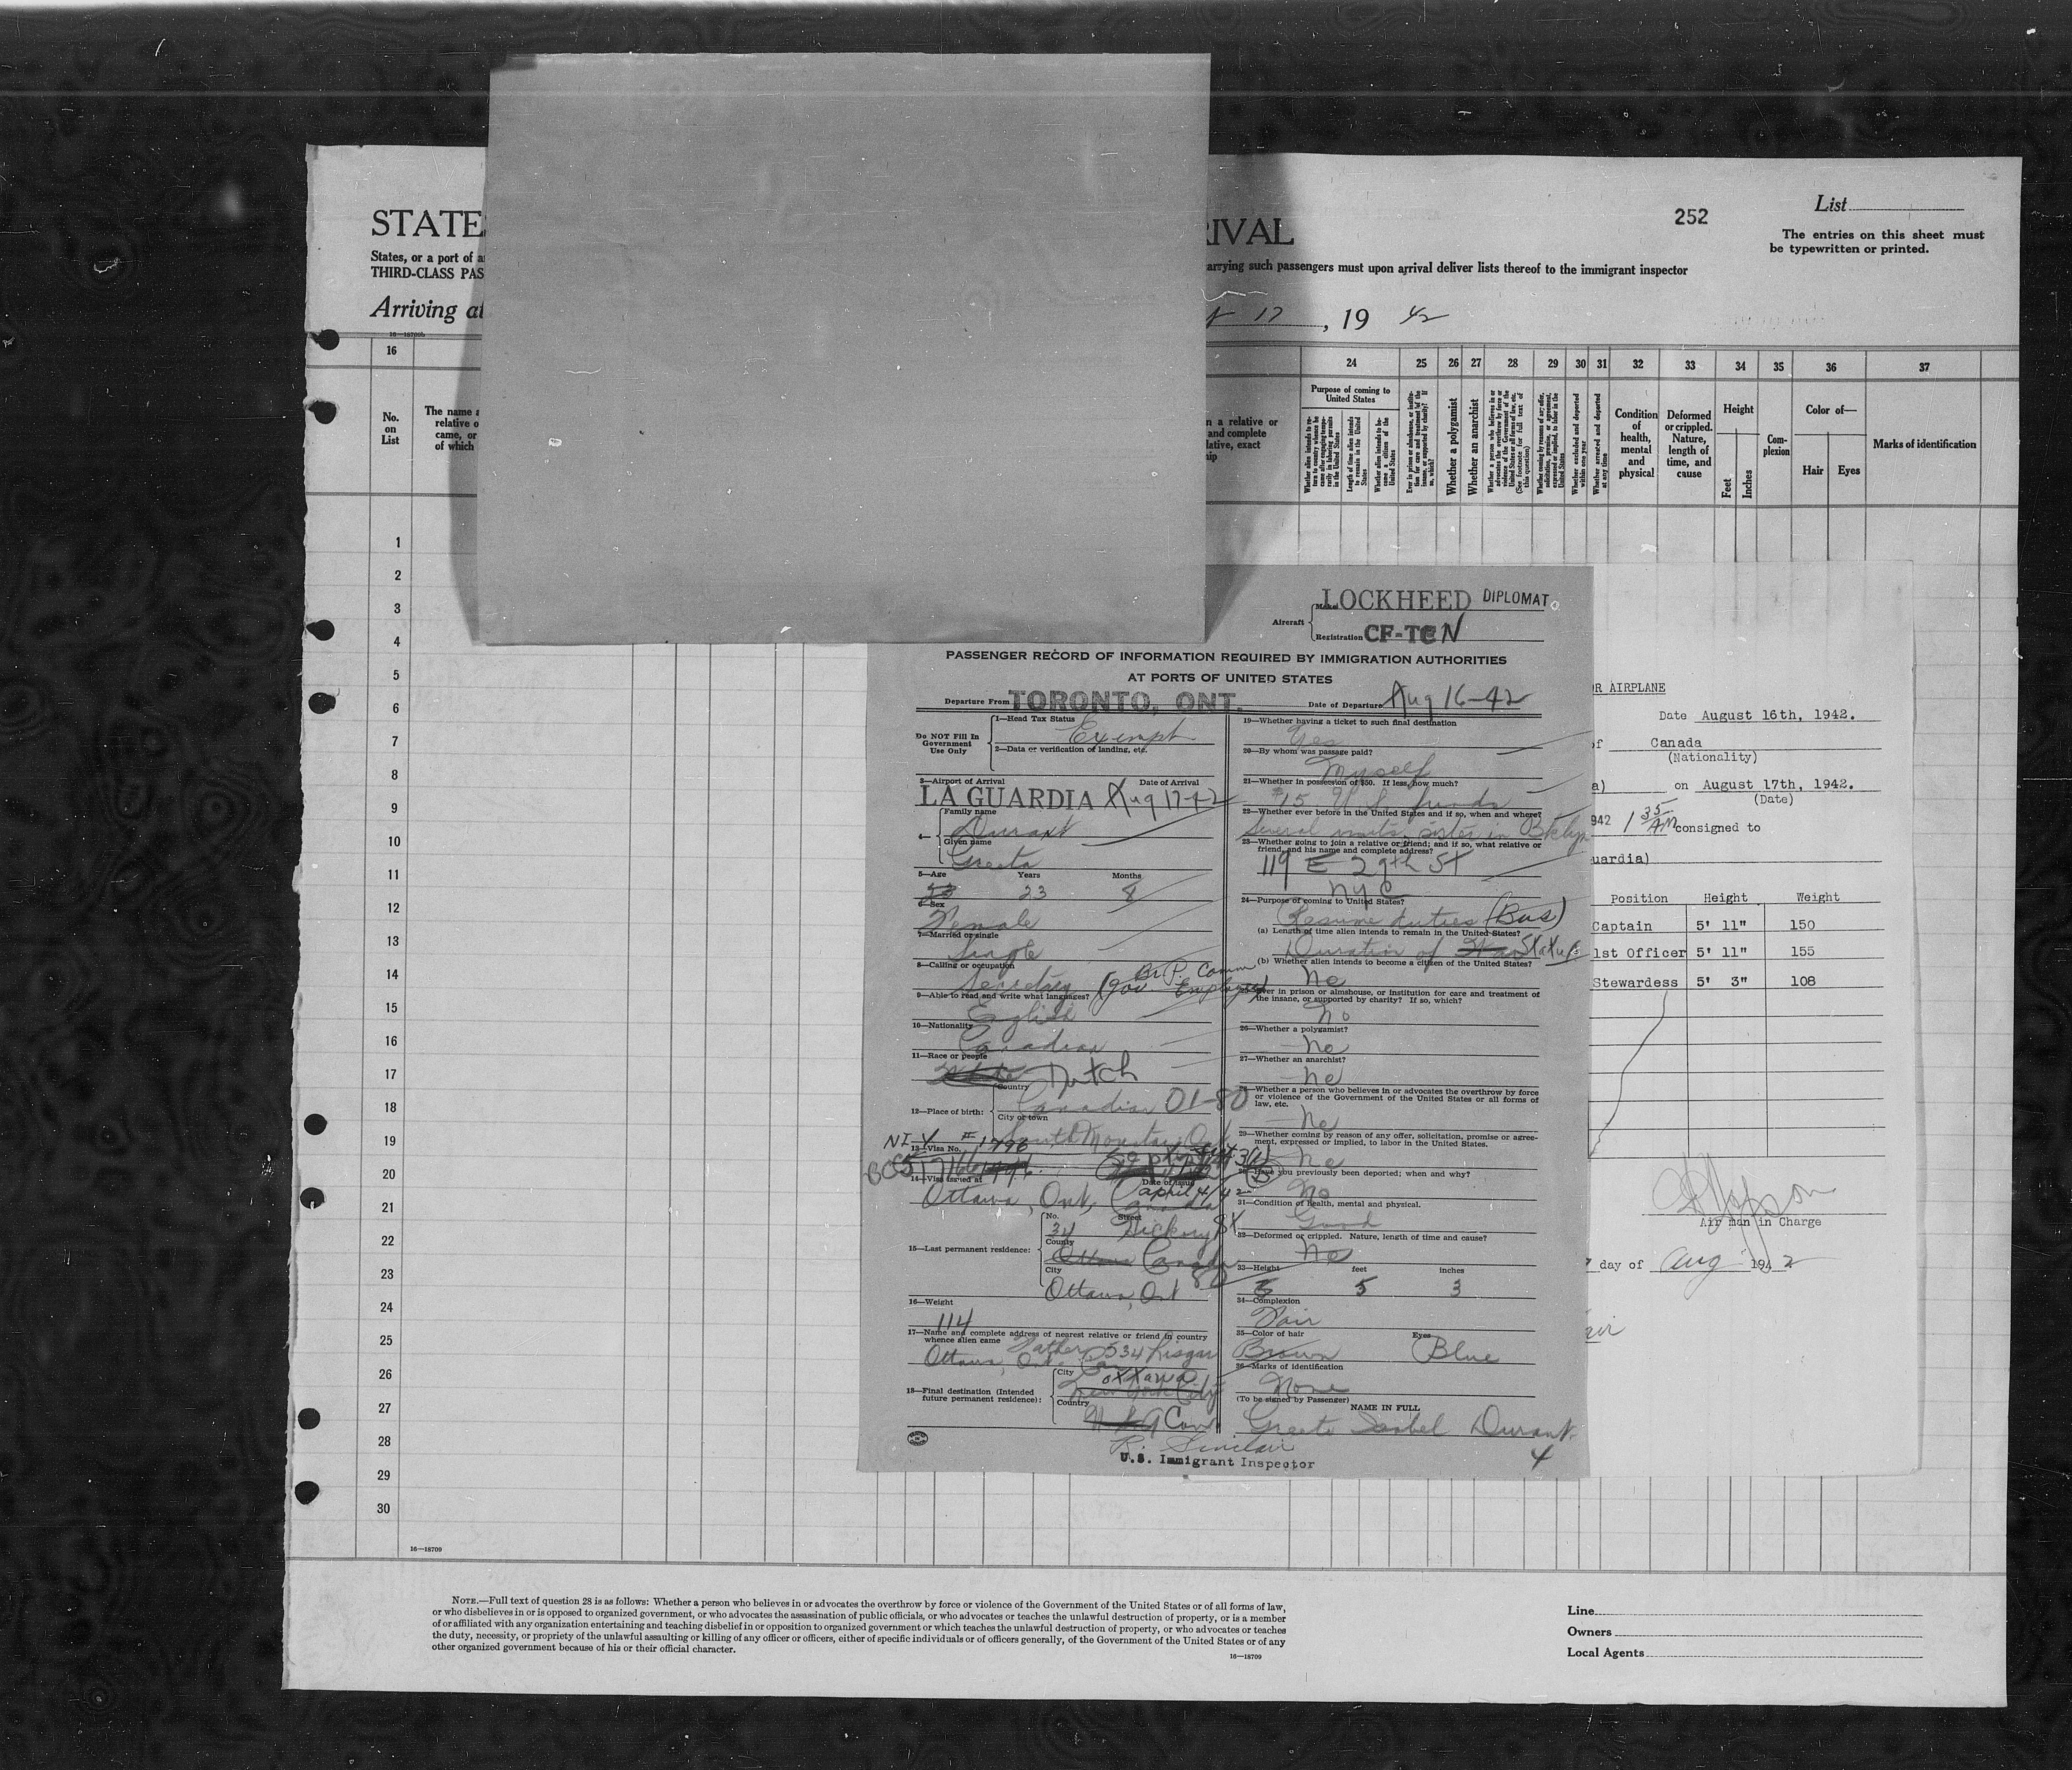 STATE
RIVAL
252
List
The entries on this sheet must
be typewritten or printed.
States, or a port of a
arrying such passengers must upon arrival deliver lists thereof to the immigrant inspector
THIRD-CLASS PAS
Arriving at
17, 19 42
16—18709b
16
24 25 26 27 28 29 30 31 32 33 34 35 36 37
No.
on
List
The name a
relative o
came, or
of which
n a relative or
and complete
lative, exact
ip
Purpose of coming to
United States
Whether a polygamist
Whether an anarchist
Condition
of
health,
mental
and
physical
Deformed
or crippled.
Nature,
length of
time, and
cause
Height
Feet
Inches
Com-
plexion
Color of—
Hair
Eyes
Marks of identification
1
2
3
4
5
6
7
8
9
10
11
12
13
14
15
16
17
18
19
20
21
22
23
24
25
26
27
28
29
30
16—18709
Aircraft
Make LOCKHEED DIPLOMAT
Registration CF-TCN
PASSENGER RECORD OF INFORMATION REQUIRED BY IMMIGRATION AUTHORITIES
AT PORTS OF UNITED STATES
Departure From TORONTO, ONT. Date of Departure Aug 16-42
Do NOT Fill In
Government
Use Only
1—Head Tax Status
Exempt
2—Data or verification of landing, etc.
3—Airport of Arrival Date of Arrival
LA GUARDIA Aug 17-42
4—
Family name
Durant
Given name
Greeta
5—Age Years Months
23 8
6—Sex
Female
7—Married or single
Single
8—Calling or occupation
Br. P. Comm
Secretary (Gov. Employee)
9—Able to read and write what languages?
English
10—Nationality
Canadian
11—Race or people
Dutch
12—Place of birth:
Country
Canadian 01-80
City or town
South Ont
NIV # 1796
13—Visa No.
14—Visa issued at Date of issue
Ottawa, Ont, Canada April 4/42
15—Last permanent residence:
No. Street
34 Hickory St
County
Ottawa Canada
80
City
Ottawa, Ont
16—Weight
114
17—Name and complete address of nearest relative or friend in country
whence alien came Father 534 Lisgar
Ottawa, Ont. Can
18—Final destination (Intended
future permanent residence):
City
Ottawa
New York City
Country
Can
19—Whether having a ticket to such final destination
Yes
20—By whom was passage paid?
Myself
21—Whether in possession of $50. If less, how much?
$15 U.S. funds
22—Whether ever before in the United States and if so, when and where?
Several visits, sister in Bklyn
23—Whether going to join a relative or friend; and if so, what relative or
friend, and his name and complete address?
119 E 29th St
NYC
24—Purpose of coming to United States?
Resume duties (Bus)
(a) Length of time alien intends to remain in the United States?
Duration of Status
(b) Whether alien intends to become a citizen of the United States?
No
25—Ever in prison or almshouse, or institution for care and treatment of
the insane, or supported by charity? If so, which?
No
26—Whether a polygamist?
No
27—Whether an anarchist?
No
28—Whether a person who believes in or advocates the overthrow by force
or violence of the Government of the United States or all forms of
law, etc.
No
29—Whether coming by reason of any offer, solicitation, promise or agree-
ment, expressed or implied, to labor in the United States.
No
30—Have you previously been deported; when and why?
No
31—Condition of health, mental and physical.
Good
32—Deformed or crippled. Nature, length of time and cause?
No
33—Height feet inches
5 3
34—Complexion
Fair
35—Color of hair Eyes
Brown Blue
36—Marks of identification
None
(To be signed by Passenger)
NAME IN FULL
Greeta Isabel Durant
4
R. Sinclair
U.S. Immigrant Inspector
R AIRPLANE
Date August 16th, 1942.
of Canada
(Nationality)
a) on August 17th, 1942.
(Date)
942 1 35 AM consigned to
uardia)
Position Height Weight
Captain 5' 11" 150
1st Officer 5' 11" 155
Stewardess 5' 3" 108
Air man in Charge
day of Aug 1942
air
NOTE.—Full text of question 28 is as follows: Whether a person who believes in or advocates the overthrow by force or violence of the Government of the United States or of all forms of law,
or who disbelieves in or is opposed to organized government, or who advocates the assassination of public officials, or who advocates or teaches the unlawful destruction of property, or is a member
of or affiliated with any organization entertaining and teaching disbelief in or opposition to organized government or which teaches the unlawful destruction of property, or who advocates or teaches
the duty, necessity, or propriety of the unlawful assaulting or killing of any officer or officers, either of specific individuals or of officers generally, of the Government of the United States or of any
other organized government because of his or their official character.
16—18709
Line
Owners
Local Agents